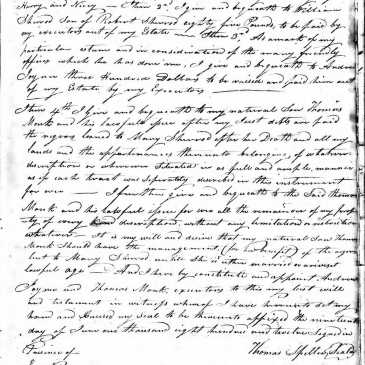 Item 2d. I give and bequeath to William
Son of Robert eighty five Pounds, to be paid by
my executors out of my Estate — Item 3d As a mark of my
particular esteem and in consideration of the many friendly
offices which he has done me, I give and bequeath to Andrew
Joyner three Hundred Dollars to be raised and paid him out
of my Estate by my Executors
Item 4th I give and bequeath to my natural Son Thomas
Monk and his lawful after my Just debts are paid
the negroes loaned to Mary after her Death and all my
lands and the appurtenances thereunto belonging, of whatever
description or wherever situated in as full and ample, manner
as if each tract was separately described in this instrument
for ever — I further give and bequeath to the said Thomas
Monk and his lawful for ever all the remainder of my prop
ty of every description, without any limitation or restriction
whatever. It is my will and desire that my natural Son Thomas
Monk should have the management of the negroes
lent to Mary until she is either married or arrives at
lawful age — And I hereby constitute and appoint Andrew
Joyner and Thomas Monk, executors to this my last will
and testament in witness whereof I have hereunto set my
hand and caused my seal to be thereunto affixed the nineteenth
day of June one thousand eight hundred and twelve Signed in
Presence of
Thomas Spiller (Seal)